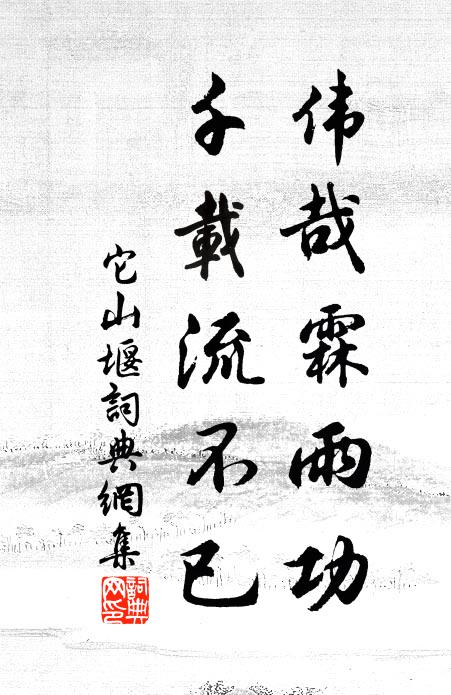 伟哉霖雨功
千載流不已
它山堰詞典網集
詞典网印